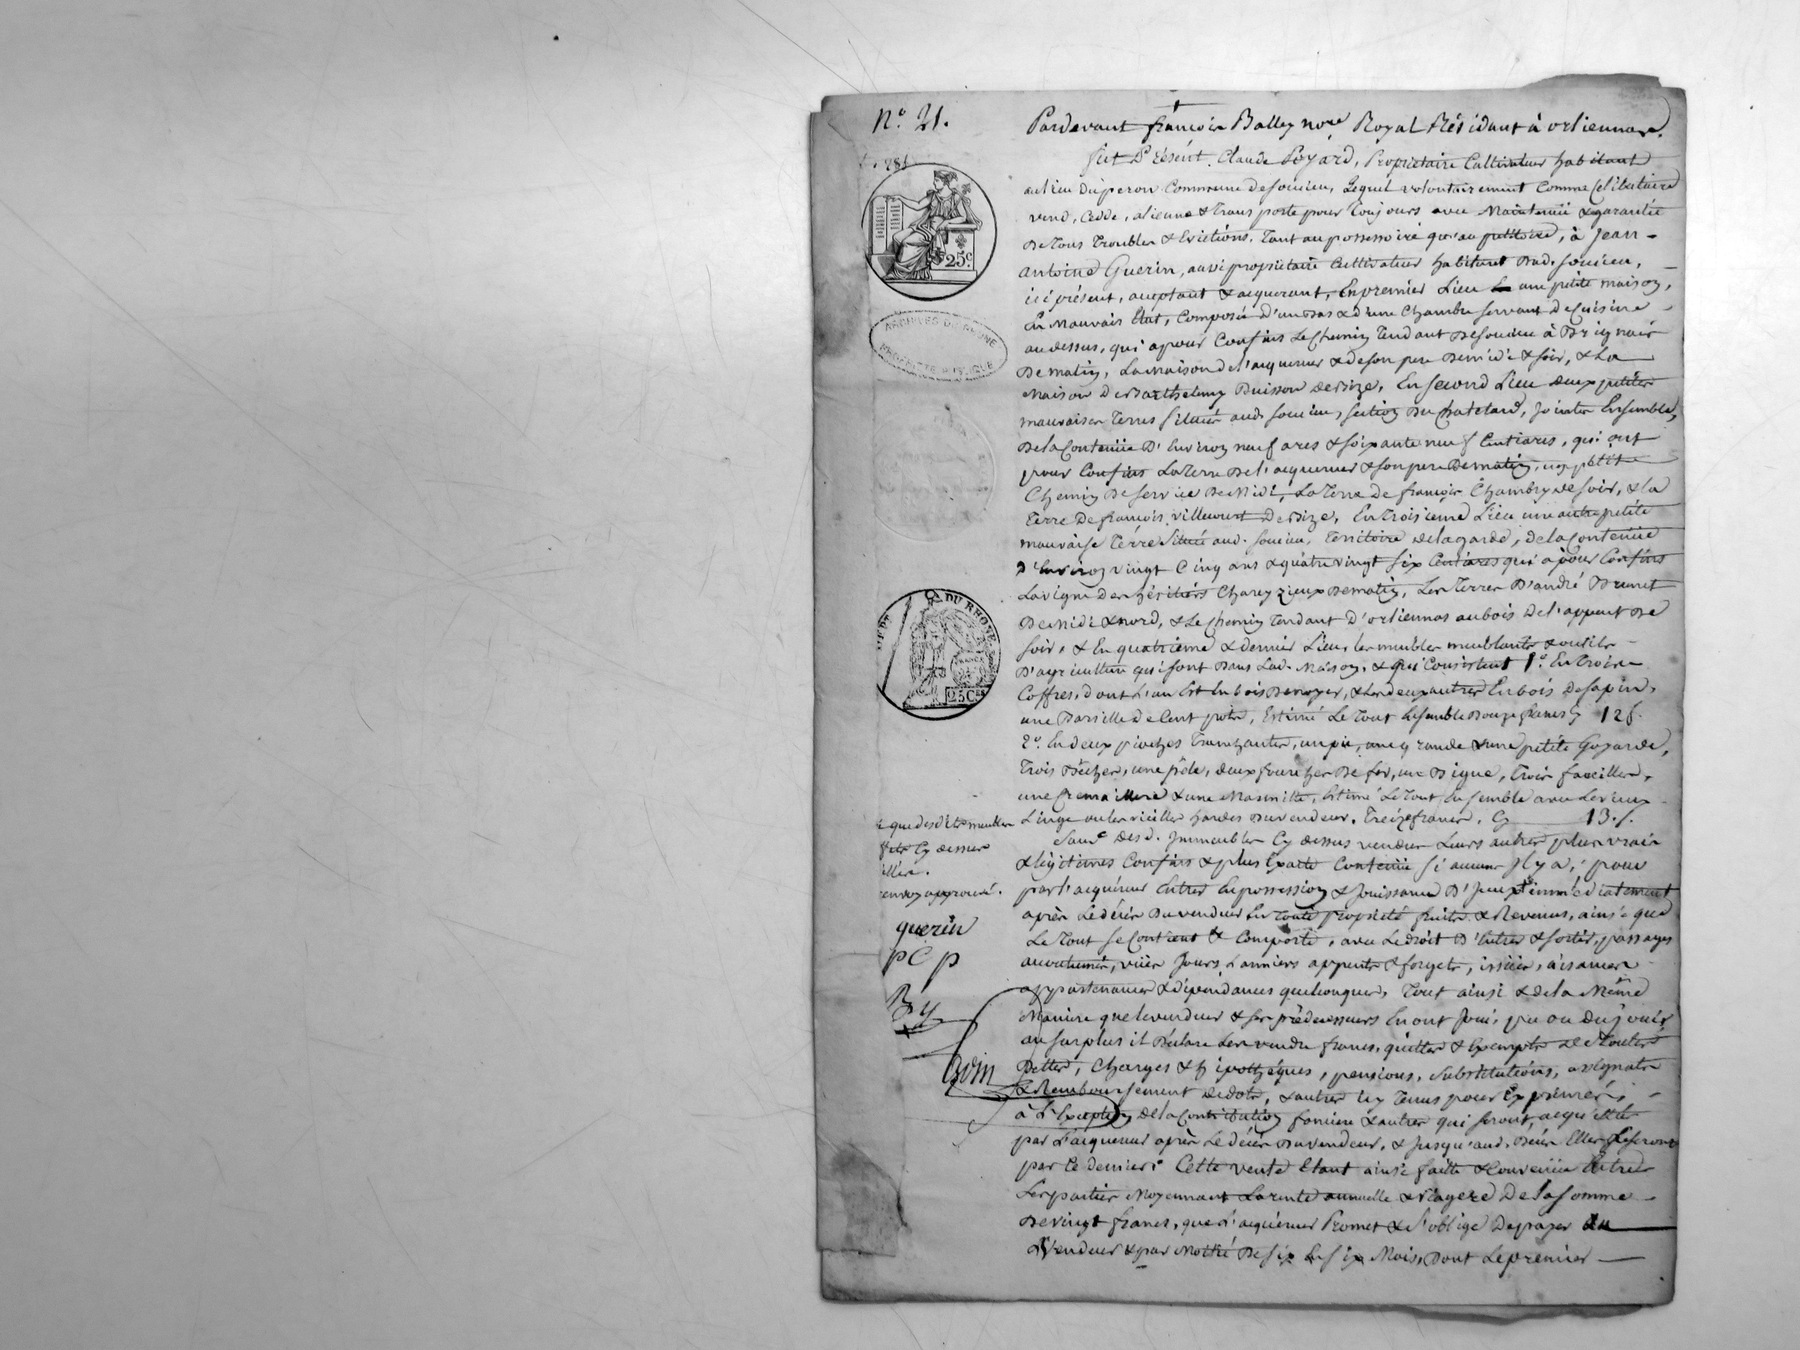 N.o 21.
Pardevant françois Balley nore Royal Résidant à orliennas.
fut Présént Claude Loyard, Propriétaire Cultivateur habitant
au lieu du peron Commune de soucieu, Lequel volontairement Comme Celibataire
vend, Cedde, alienne & transporte pour toujours avec Maintenüe & garantie
De tous troubles & Evictions, tant au possessoire qu'au petitoire, à Jean-
antoine Guerin, aussi propriétaire Cultivateur habitant aud. soucieu,
ici présent, aceptant & acquerant, En premier Lieu une petite maison,
En Mauvais Etat, Composée d'un Bas & d'une Chambre servant de Cuisine
au dessus, qui a pour Confins Le Chemin tendant De soucieu à Brignais
De matin, La Maison de l'acquereur & de son pere De midi & soir, & La
Maison De Barthelemy Buisson de Bize, En second Lieu deux petites
mauvaises terres situées aud. soucieu, section Du Chatelard, Jointes Ensemble,
De la Contenüe D'Environ neuf ares & soixante neuf Centiares, qui ont
pour Confins La terre De l'acquereur & son pere De matin, un petit
Chemin De service De Midi, La Terre de françois Chambry de soir, & la
terre De françois Villecourt De Bize, En troisieme Lieu une autre petite
mauvaise terre Située aud. soucieu, territoire de la garde, de la Contenüe
D'Environ vingt Cinq ares & quatre vingt six Centiares qui a pour Confins
La vigne des héritiers Charezieux De matin, Les terres D'andré Brunet
De Midi & nord, & Le Chemin tendant D'orliennas au bois De l'appent De
soir, & En quatrieme & dernier Lieu, les meubles meublants & outils
D'agriculture qui sont Dans Lad. Maison, & qui Consistent 1.o En trois
Coffres, dont L'un Est En bois De noyer, & les deux autres En bois De sapin,
une Barille de Cent pots, Estimé Le tout Ensemble Douze francs Cy 12 f.
2.o En deux pioches tranchantes, un pic, une grande & une petite Goyarde,
trois Bêches, une pèle, deux fourches De fer, une Bigue, trois faucilles,
une Cremaillere & une Marmitte, Estimé Le tout Ensemble avec Le vieux
Linge ou les vieilles hardes Du vendeur, treize francs, Cy 13 f.
Sauf Des d. Immeubles Cy dessus vendus Leurs autres plus vrais
& légitimes Confins & plus Exacte Contenüe si aucune Il y a, pour
par l'acquéreur Entrer En possession & Jouissance D'Iceux immédiatement
après Le décès Du vendeur En toute propriété fruits & Revenus, ainsi que
Le tout se Contient & Comporte, avec Le droit D'Entrer & sortir, passages
accoutumés, vües Jours, Larmiers appents & forgets, issües, aisances
appartenances & dépendances quelconques, tout ainsi & de la Même
Maniere que le vendeur & ses prédécesseurs En ont Joui, pu ou dû Jouir
au surplus il Déclare Les vendre francs, quittes & Exempts de toutes
Dettes, Charges & hipothéques, pensions, substitutions,
& Remboursement de dots, & autres
à L'Exception de la Contribution fonciere & autres qui seront acquittées
par L'acquereur après Le décès Du vendeur, & Jusqu'aud. Décès Elles Le seront
par Ce dernier. Cette vente Etant ainsi faitte & Convenüe Entre
Les parties Moyennant La rente annuelle & viagere De la somme
De vingt francs, que L'acquéreur Promet & s'oblige De payer au
Vendeur & par Moitié De six En six Mois, Dont Le premier
25c.
ARCHIVES DU RHONE
PROPRIETE PUBLIQUE
DU RHONE
25 Ces
que desdits meubles
Cy dessus
renvoy approuvé.
guerin
P C P
By